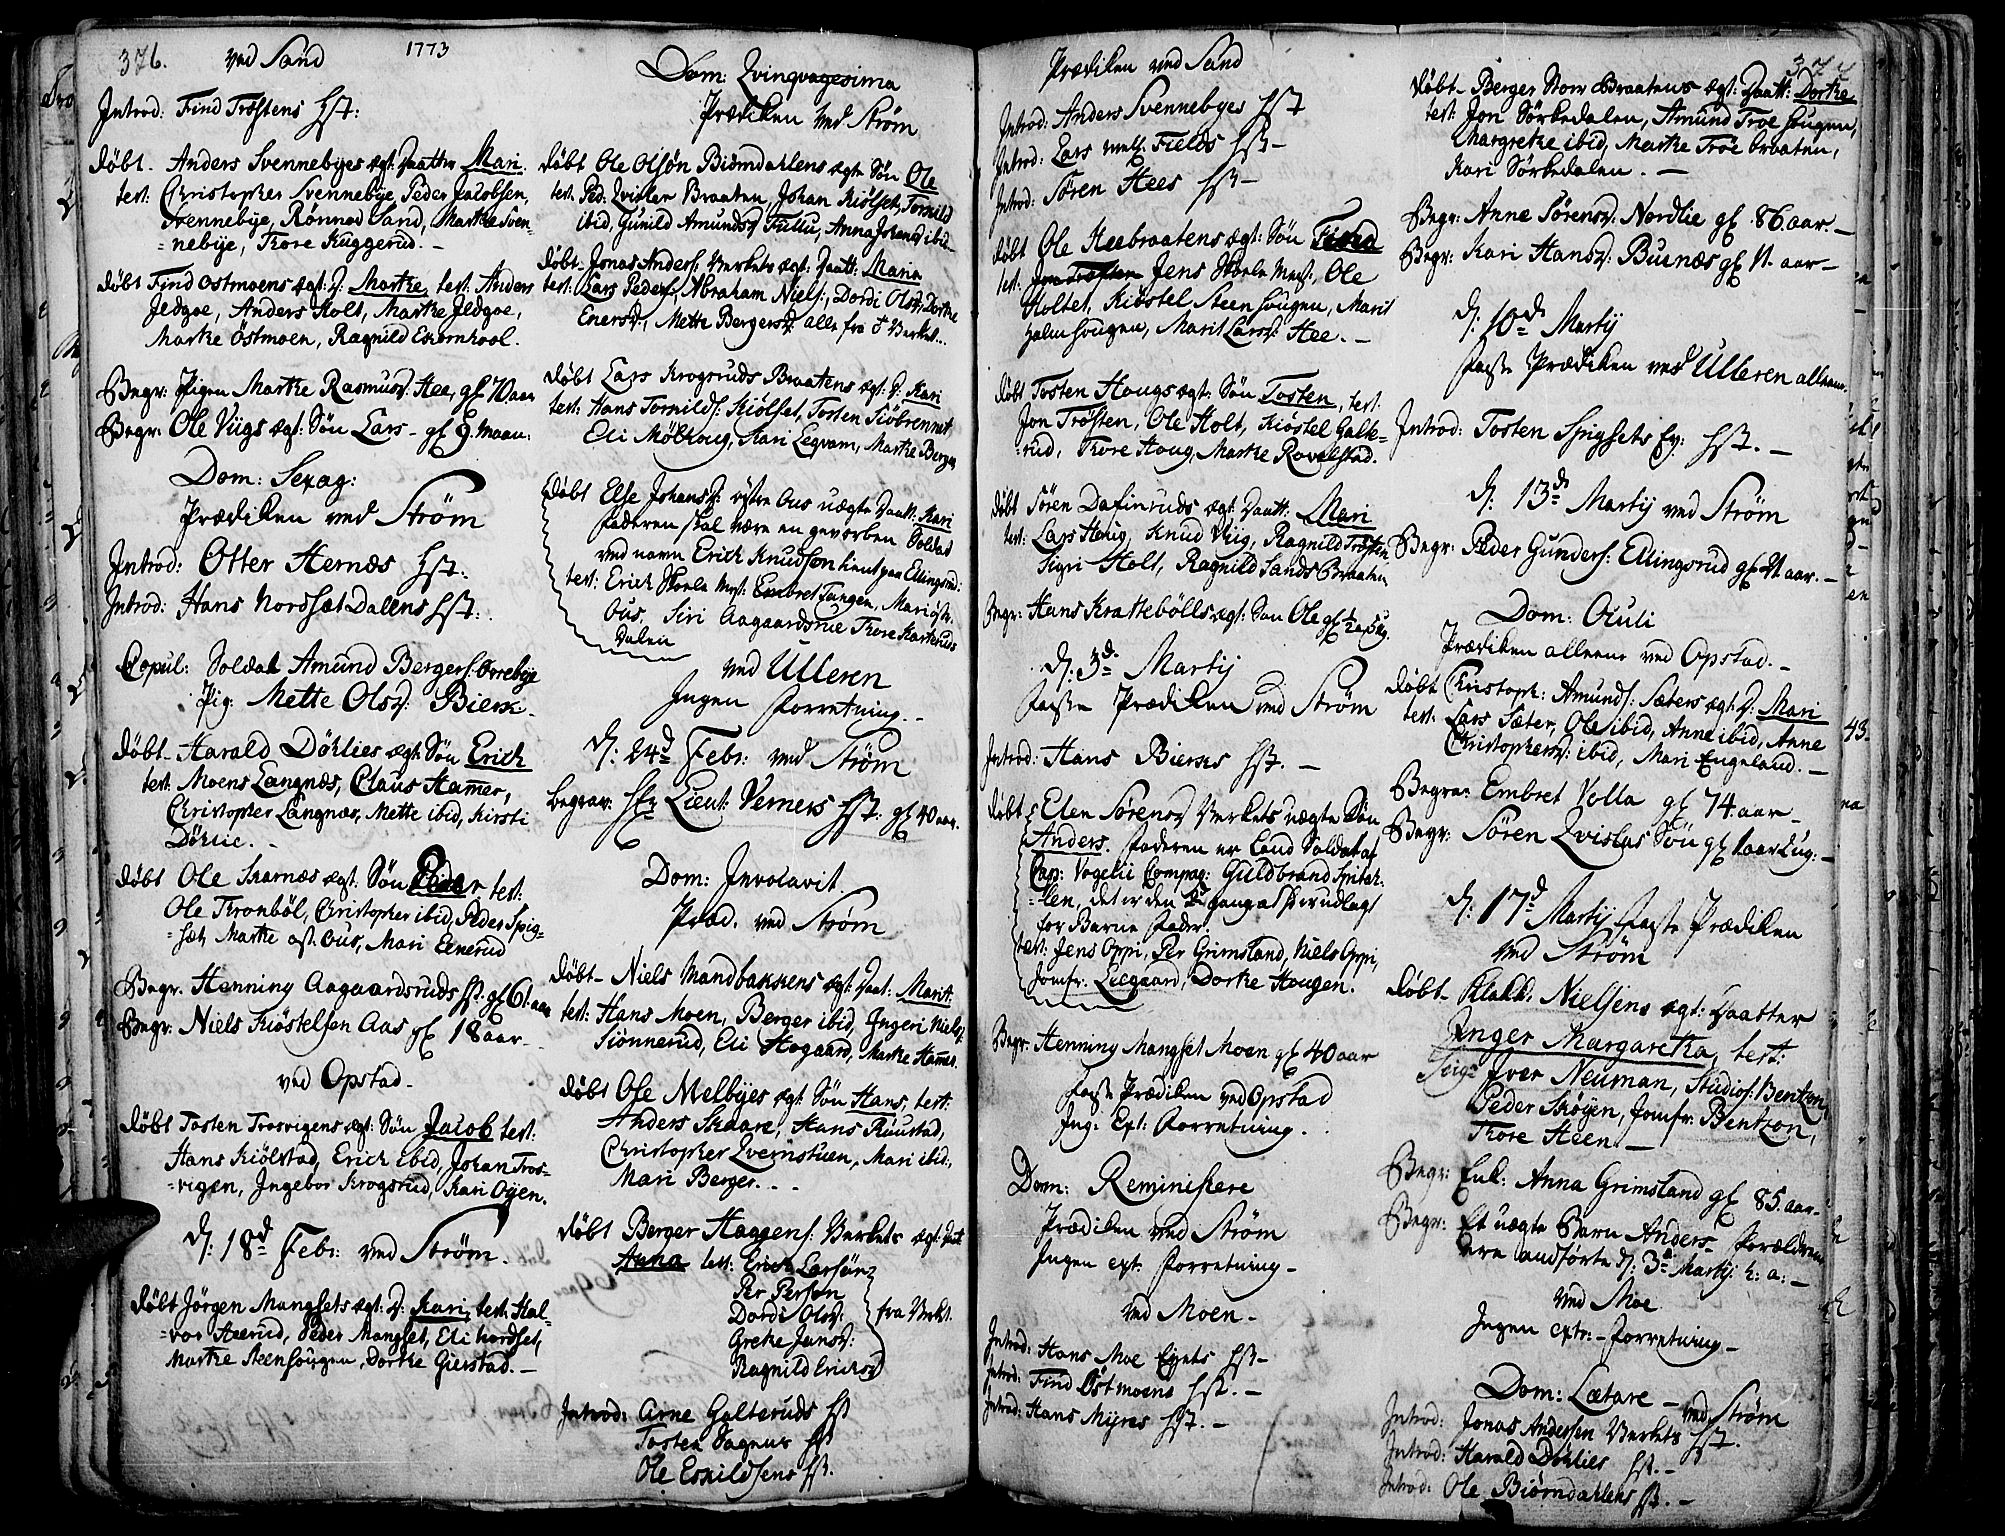 376.
ved Sand
1773
Introd: Find Trøstens hst:
døbt. Anders Svennebyes ægt: Daatter Mari.
test: Christopher Svennebye, Peder Jacobsen,
Svennebye, Rønnod Sand, Marthe Sven-
=nebye, Thore Kuggerud. -
døbt Find Ostmoens ægt: D: Marthe, test: Anders
Jedgoe, Anders Holt, Marthe Jedgoe,
Marthe Östmoen, Ragnild Ekornhool.
Begr: Pigen Marthe Rasmusd: Hee, gl 70 aar
Begr: Ole Viigs ægt: Søn Lars - gl 9. Maan:
Dom: Sexag:
Prædiken ved Strøm
Introd: Otter Hernæs hst.
Introd: Hans Nordsæt Dalens hst:
Copul: Soldat Amund Bergers: Overbye
Pig: Mette Olsd: Bierk.
døbt. Harald Döhlies ægt: Søn Erich
test: Moens Langnæs, Claus Hamer,
Christopher Langnæs, Mette ibid, Kirsti
Döhlie. -
døbt Ole Skarnæs ægt: Søn Peder test:
Ole Kronböl, Christopher ibid, Peder Spig-
=sæt, Marthe øst. Ous, Mari Einerud
Begr. Henning Aagaardsruds hst. gl 61. aar
Begr: Niels Kiöstelsen Aas gl 18 aar.
ved Opstad.
døbt Tosten Trosvigens ægt: Søn Jacob test:
Hans Kiölstad, Erich ibid, Johan Tros-
=vigen, Ingebor Krogsrud, Kari Oyen.
d: 18d Febr: ved Strøm.
døbt Jörgen Mangsets ægt: D: Kari, test: Hal-
=vor Aserud, Peder Mangset, Eli Nordset,
Marthe Steenhougen, Dorthe Gierstad. -
Dom: Qvinqvagesima
Prædiken ved Strøm
døbt Ole Olsøn Biørndahlens ægte Søn Ole
test: Ped: Qvisler Braaten, Johan Kiölset, Tornild
ibid, Gunild Amundsd: Fullu, Anna Johansd ibid -
døbt. Jonas Anders: Verkets ægt: Daatt: Maria
test: Lars Peders:, Abraham Niels:, Dordi Olsd:, Dorthe
Enersd:, Mette Bergersd: alle fra d Verket..
døbt Lars Krogsruds Braatens ægt: D: Kari
test: Hans Tornilds: Kiölset, Tosten Siöbrennet
Eli Mölhoug, Kari Legvam, Marthe Berger
døbt Else Johansd: østre Ous uægte Daatt: Kari
faderen skal være en geworben Soldat
ved navn Erich Knudsøn kient paa Ellingsrud:
test: Erich Skoele Mest: Embret Tangen, Mari östr.
Ous. Siri Aagaardsrue Thore Kartterud
Dalen
ved Ulleren
Ingen Forretning. -
d: 24d Febr: ved Strøm
Begrav: Hr Lieut: Verners hst: gl 40 aar.
Dom: Invocavit.
Præd. ved Strøm
døbt. Niels Mandbakkens ægt: Daat: Marit.
test: Hans Moen, Berger ibid, Ingeri Niels:
Siönnerud, Eli Hogaard, Marthe Hamer.
døbt Ole Melbyes ægt: Søn Hans, test:
Anders Skaare, Hans Ruustad,
Christopher Qvernstuen, Mari ibid:,
Mari Berger. - -
døbt Berger Haggens: Verkets ægt: Daat
Anna test: Erich Larsön
Per Person
Dordi Olsd:
Grethe Jansd:
Ragnild Ericksd
fra Verket.
Introd: Arne Galteruds hst
Tosten Sagnus hst
Ole Eskildsens hst.
Prædiken ved Sand
377
Introd: Anders Svennebyes hst
Introd: Lars Fields hst -
Introd: Søren Hees hst -
døbt Ole Heebraatens ægt: Søn Find
test: Jon Trøsten Jens Skoele Mest:, Ole
Holtet, Kiöstel Steenhougen, Marit
Holmhougen, Marit Larsd: Hee. -
døbt Tosten Hougs ægt: Søn Tosten, test:
Jon Trösten, Ole Holt, Kiöstel Galte-
=rud, Thore Houg, Marthe Rovelstad.
døbt Søren Dafinruds ægt: Daatt: Mari
test: Lars Houg, Knud Viig, Ragnild Trøsten
Sigri Holt, Ragnild Sands Braaten
Begr: Hans Krattebölls ægt: Søn Ole gl 1/2 a 5 ug.
d: 3d Martij
Faste Prædiken ved Strøm
Introd: Hans Bierkes hst. -
døbt: Elen Sørensd Verkets uægte Søn
Anders. Faderen er Land Soldat af
Capt: Vogelii Compag: Guldbrand Spitar-
=len, det er den gang at er udlagt
for Barne Fader.
test: Jens Oppi, Per Grimsland, Niels Oppi,
Jomfr: Leegaard, Dorthe Hougen.
Begr: Henning Mangset Moen gl 40 aar
Faste Prædiken ved Opstad
Ing: Ext: Forretning. .
Dom: Reminiscere
Prædiken ved Strøm
Ingen ext: Forretning -
ved Moen -
Introd: Hans Moe Eyets hst -
Introd: Find Östmoens hst. -
Introd: Hans Myres hst. -
døbt. Berger Stom Braatens ægt: Daatt: Dorthe
test: Jon Sörkedalen, Amund Troe Hougen,
Margrethe ibid, Marthe Troe Braaten,
Kari Sørkedalen. -
Begr: Anne Sørensd: Nordlie gl 86 aar -
Begr: Kari Hansd: Buenæs gl 11. aar -
d: 10d Martij
Faste Prædiken ved Ulleren alleene.
Introd: Tosten Spigsets Ey: hst. -
d: 13d Martij ved Strøm
Begr: Peder Gunders: Ellingsrud gl 21 aar. -
Dom: Oculi
Prædiken alleene ved Opstad. -
døbt Christoph: Amunds: Sæters ægt: D: Mari
test: Lars Sæter, Ole ibid, Anne ibid, Anne
Christophersd: ibid, Mari Engeland. -
Begrav: Embret Volla gl 74. aar -
Begr: Søren Qvislus Søn gl 1 aar 2 ug: -
d: 17d Martij Faste Prædiken
ved Strøm
døbt. Klokk: Nielsens ægt: Daatter
Inger Margaretha, test:
Sieg: Iver Neuman, Studios: Bentzon,
Peder Skøyen, Jomfr: Bentzon,
Thore Heen -
Begr: Enk: Anna Grimsland gl 85. aar -
Begr: Et uægte Barn Anders. Forældrene
ere anførte d: 3d Martij h: a: -
ved Moe
Ingen extr: - Forretning -
Dom: Lætare - ved Strøm
Introd: Jonas Andersen Verkets hst.
Introd: Harald Döhlies hst. -
Introd: Ole Biørndahlens hst. -